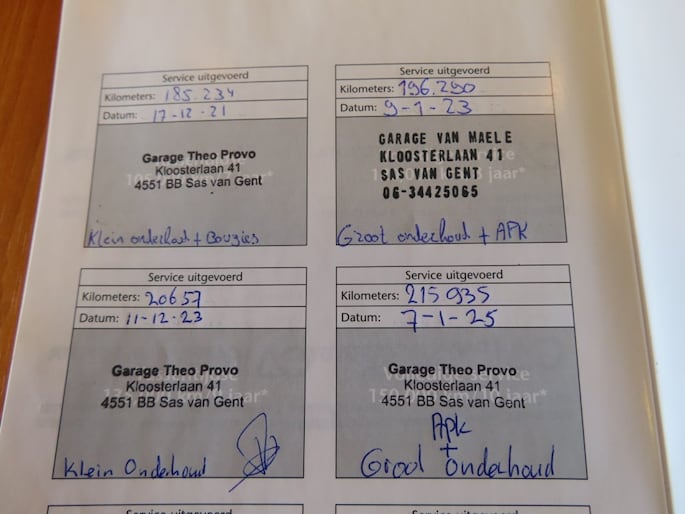 Service uitgevoerd
Kilometers: 185.234
Datum: 17-12-21
Garage Theo Provo
Kloosterlaan 41
4551 BB Sas van Gent
Klein onderhoud + Bougies
Service uitgevoerd
Kilometers: 196.290
Datum: 9-1-23
GARAGE VAN MAELE
KLOOSTERLAAN 41
SAS VAN GENT
06-34425065
jaar*
Groot onderhoud + APK
Service uitgevoerd
Kilometers: 20657
Datum: 11-12-23
Garage Theo Provo
Kloosterlaan 41
4551 BB Sas van Gent
Klein Onderhoud
Service uitgevoerd
Kilometers: 215935
Datum: 7-1-25
Garage Theo Provo
Kloosterlaan 41
4551 BB Sas van Gent
Apk
+
Groot onderhoud
Service uitgevoerd
Service uitgevoerd